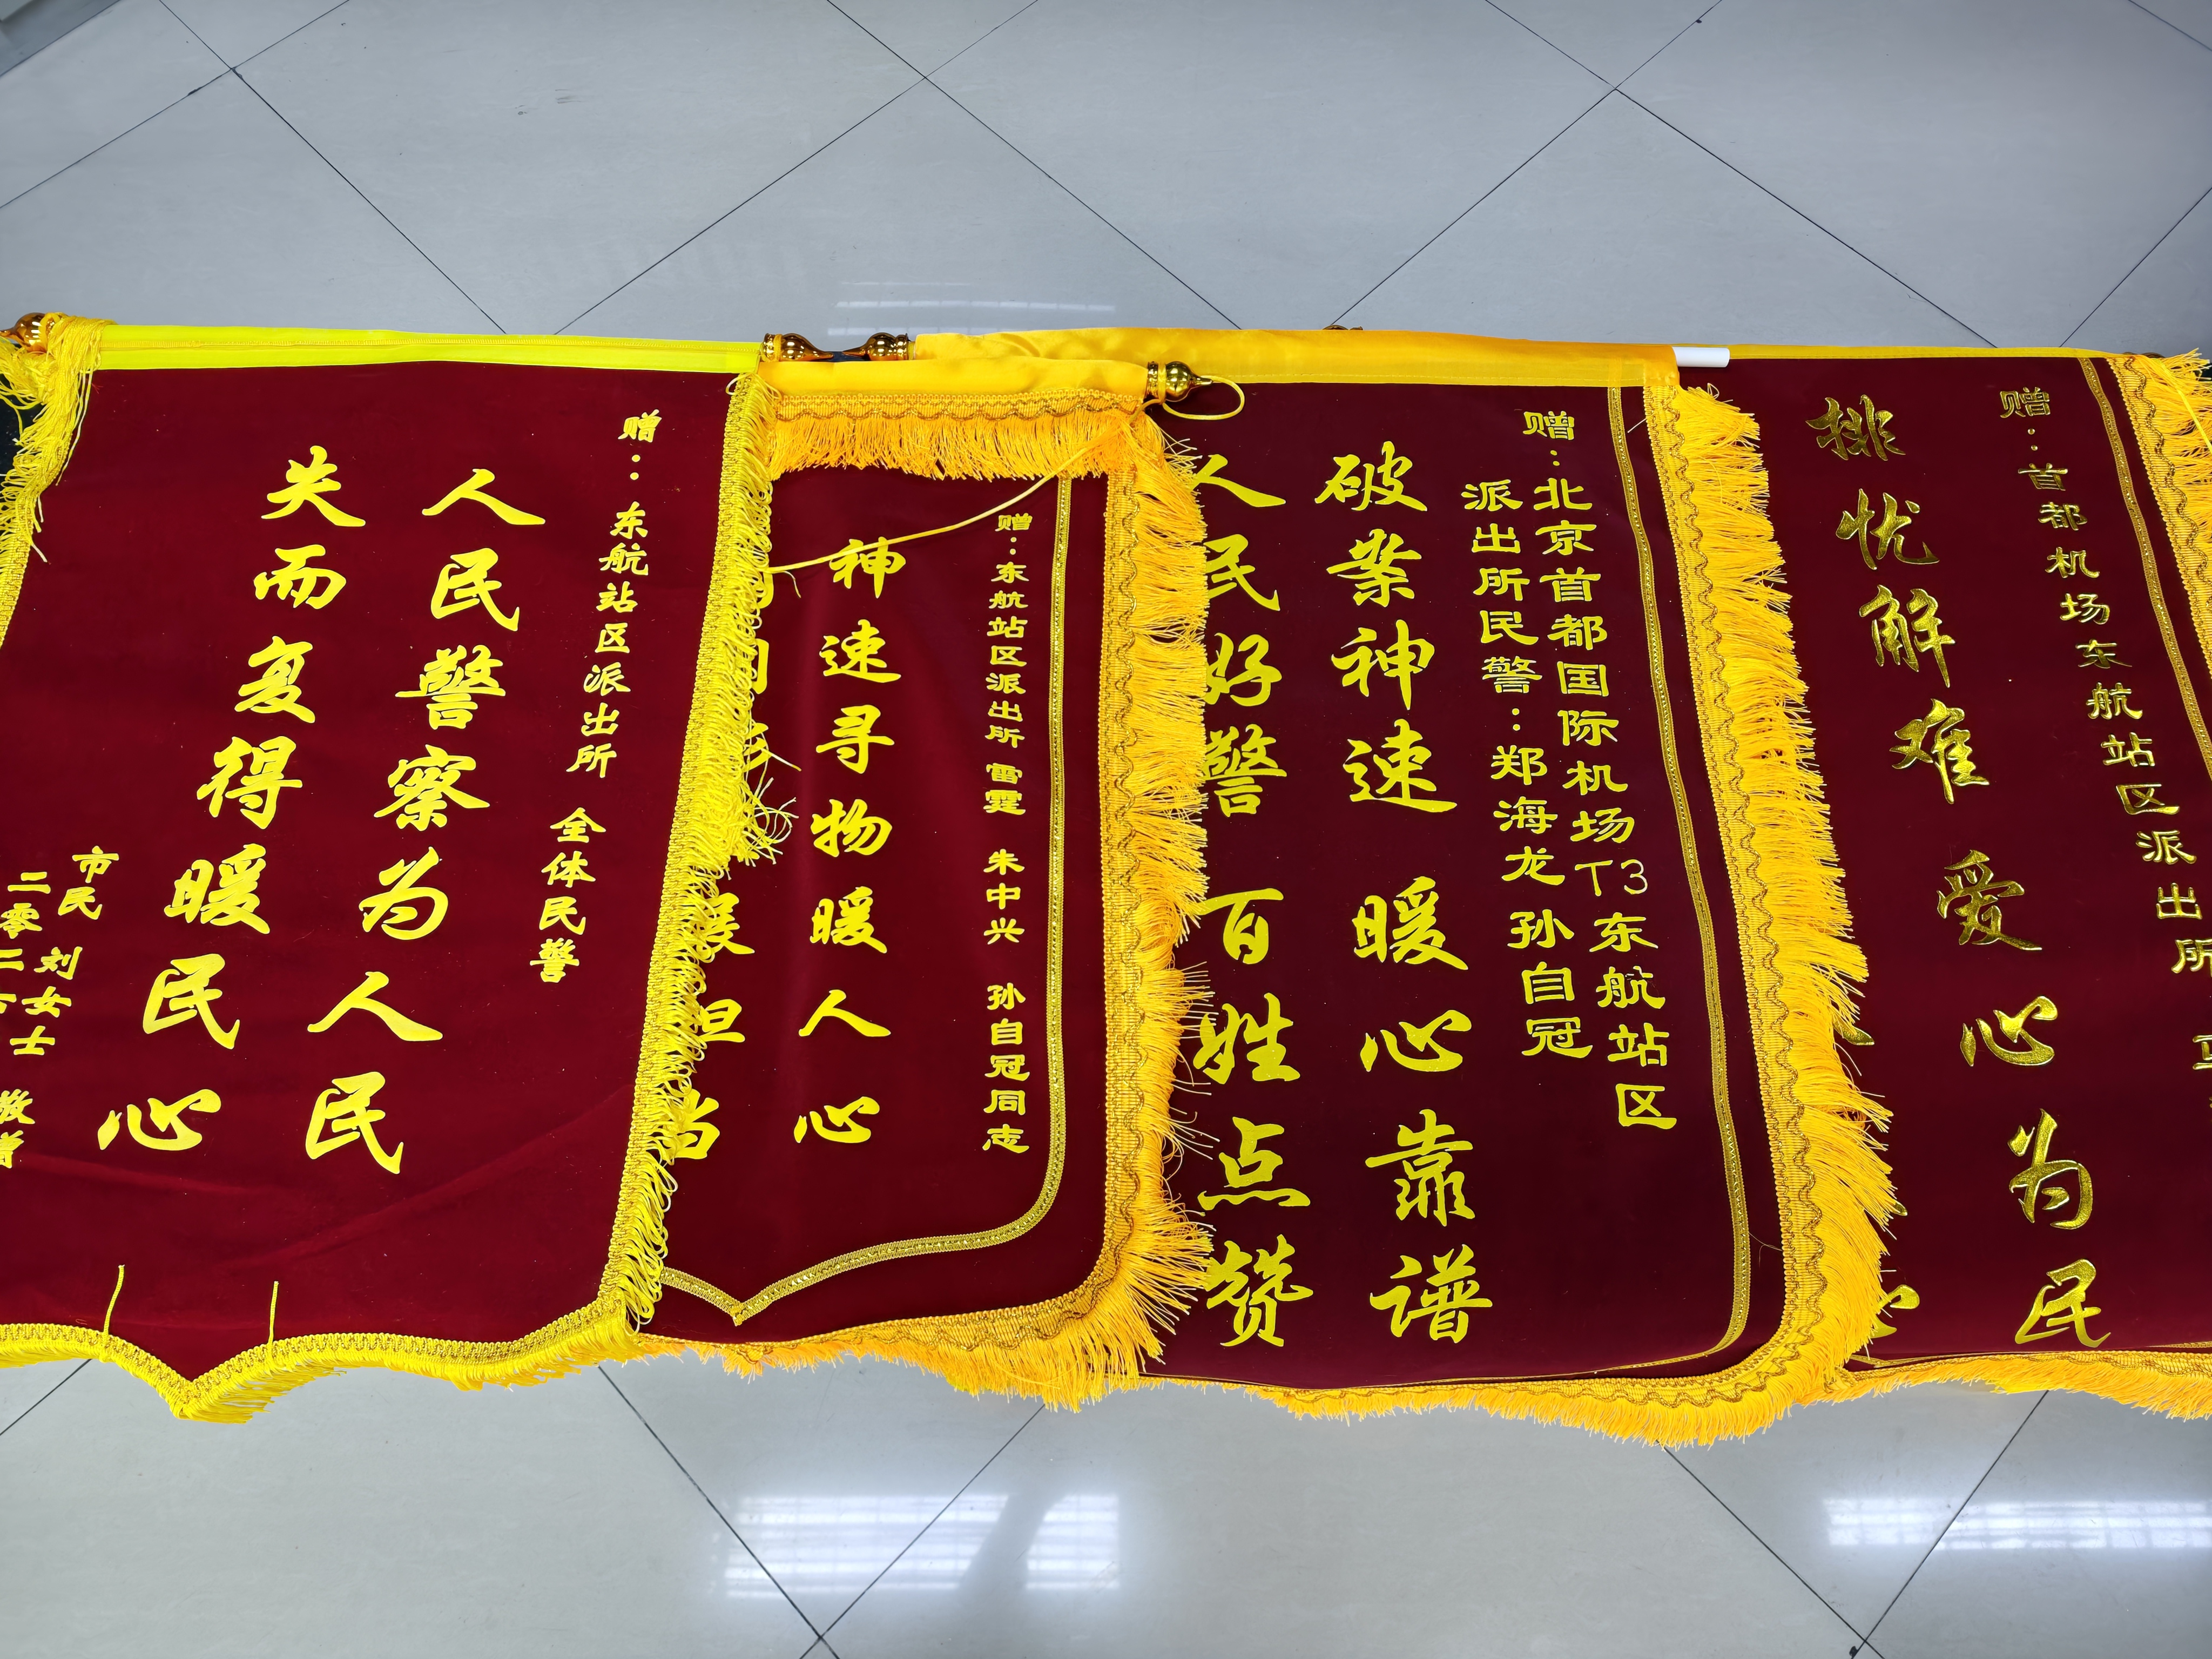 赠：东航站区派出所 全体民警
人民警察为人民
失而复得暖民心
市民 刘女士 敬赠
二零二
赠：东航站区派出所 雷霆 朱中兴 孙自冠同志
神速寻物暖人心
赠：北京首都国际机场T3东航站区
派出所民警：郑海龙 孙自冠
破案神速 暖心靠谱
人民好警 百姓点赞
赠：首都机场东航站区派出所
排忧解难 爱心为民